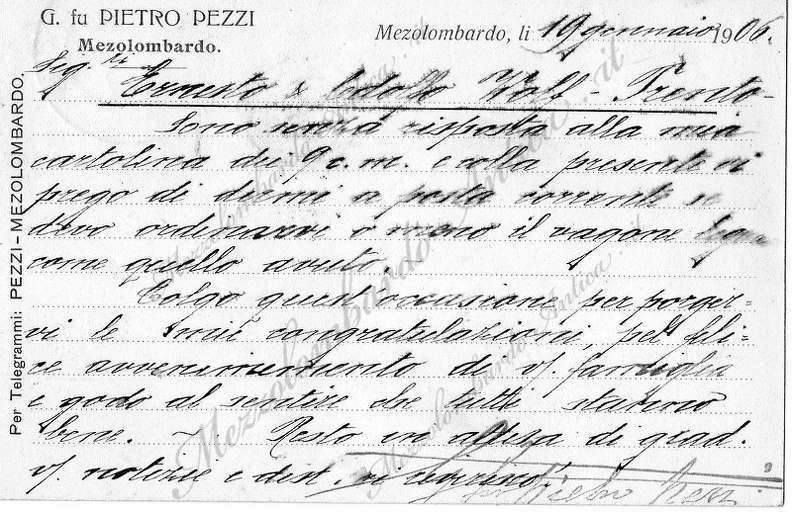 G. fu PIETRO PEZZI
Mezolombardo.
Mezolombardo, li 19 gennaio 1906.
Per Telegrammi: PEZZI - MEZOLOMBARDO.
Sig.ri
Ernesto & Adolfo Wolf - Trento -
Sono senza risposta alla mia
cartolina du 9 c. m. e colla presente vi
prego di dirmi a posta corrente se
devo ordinarvi o meno il vagone
come quello avuto.
Colgo quest'occasione per porger-
vi le mie congratulazioni, pel feli-
ce avvenimento di v/. famiglia
e godo al sentire che tutti stanno
bene. ~ Resto in attesa di grad.
v/. notizie e dist. vi
fu Pietro Pezzi
Mezzolombardo Antica . it
Mezzolombardo Antica . it
Mezzolombardo Antica . it